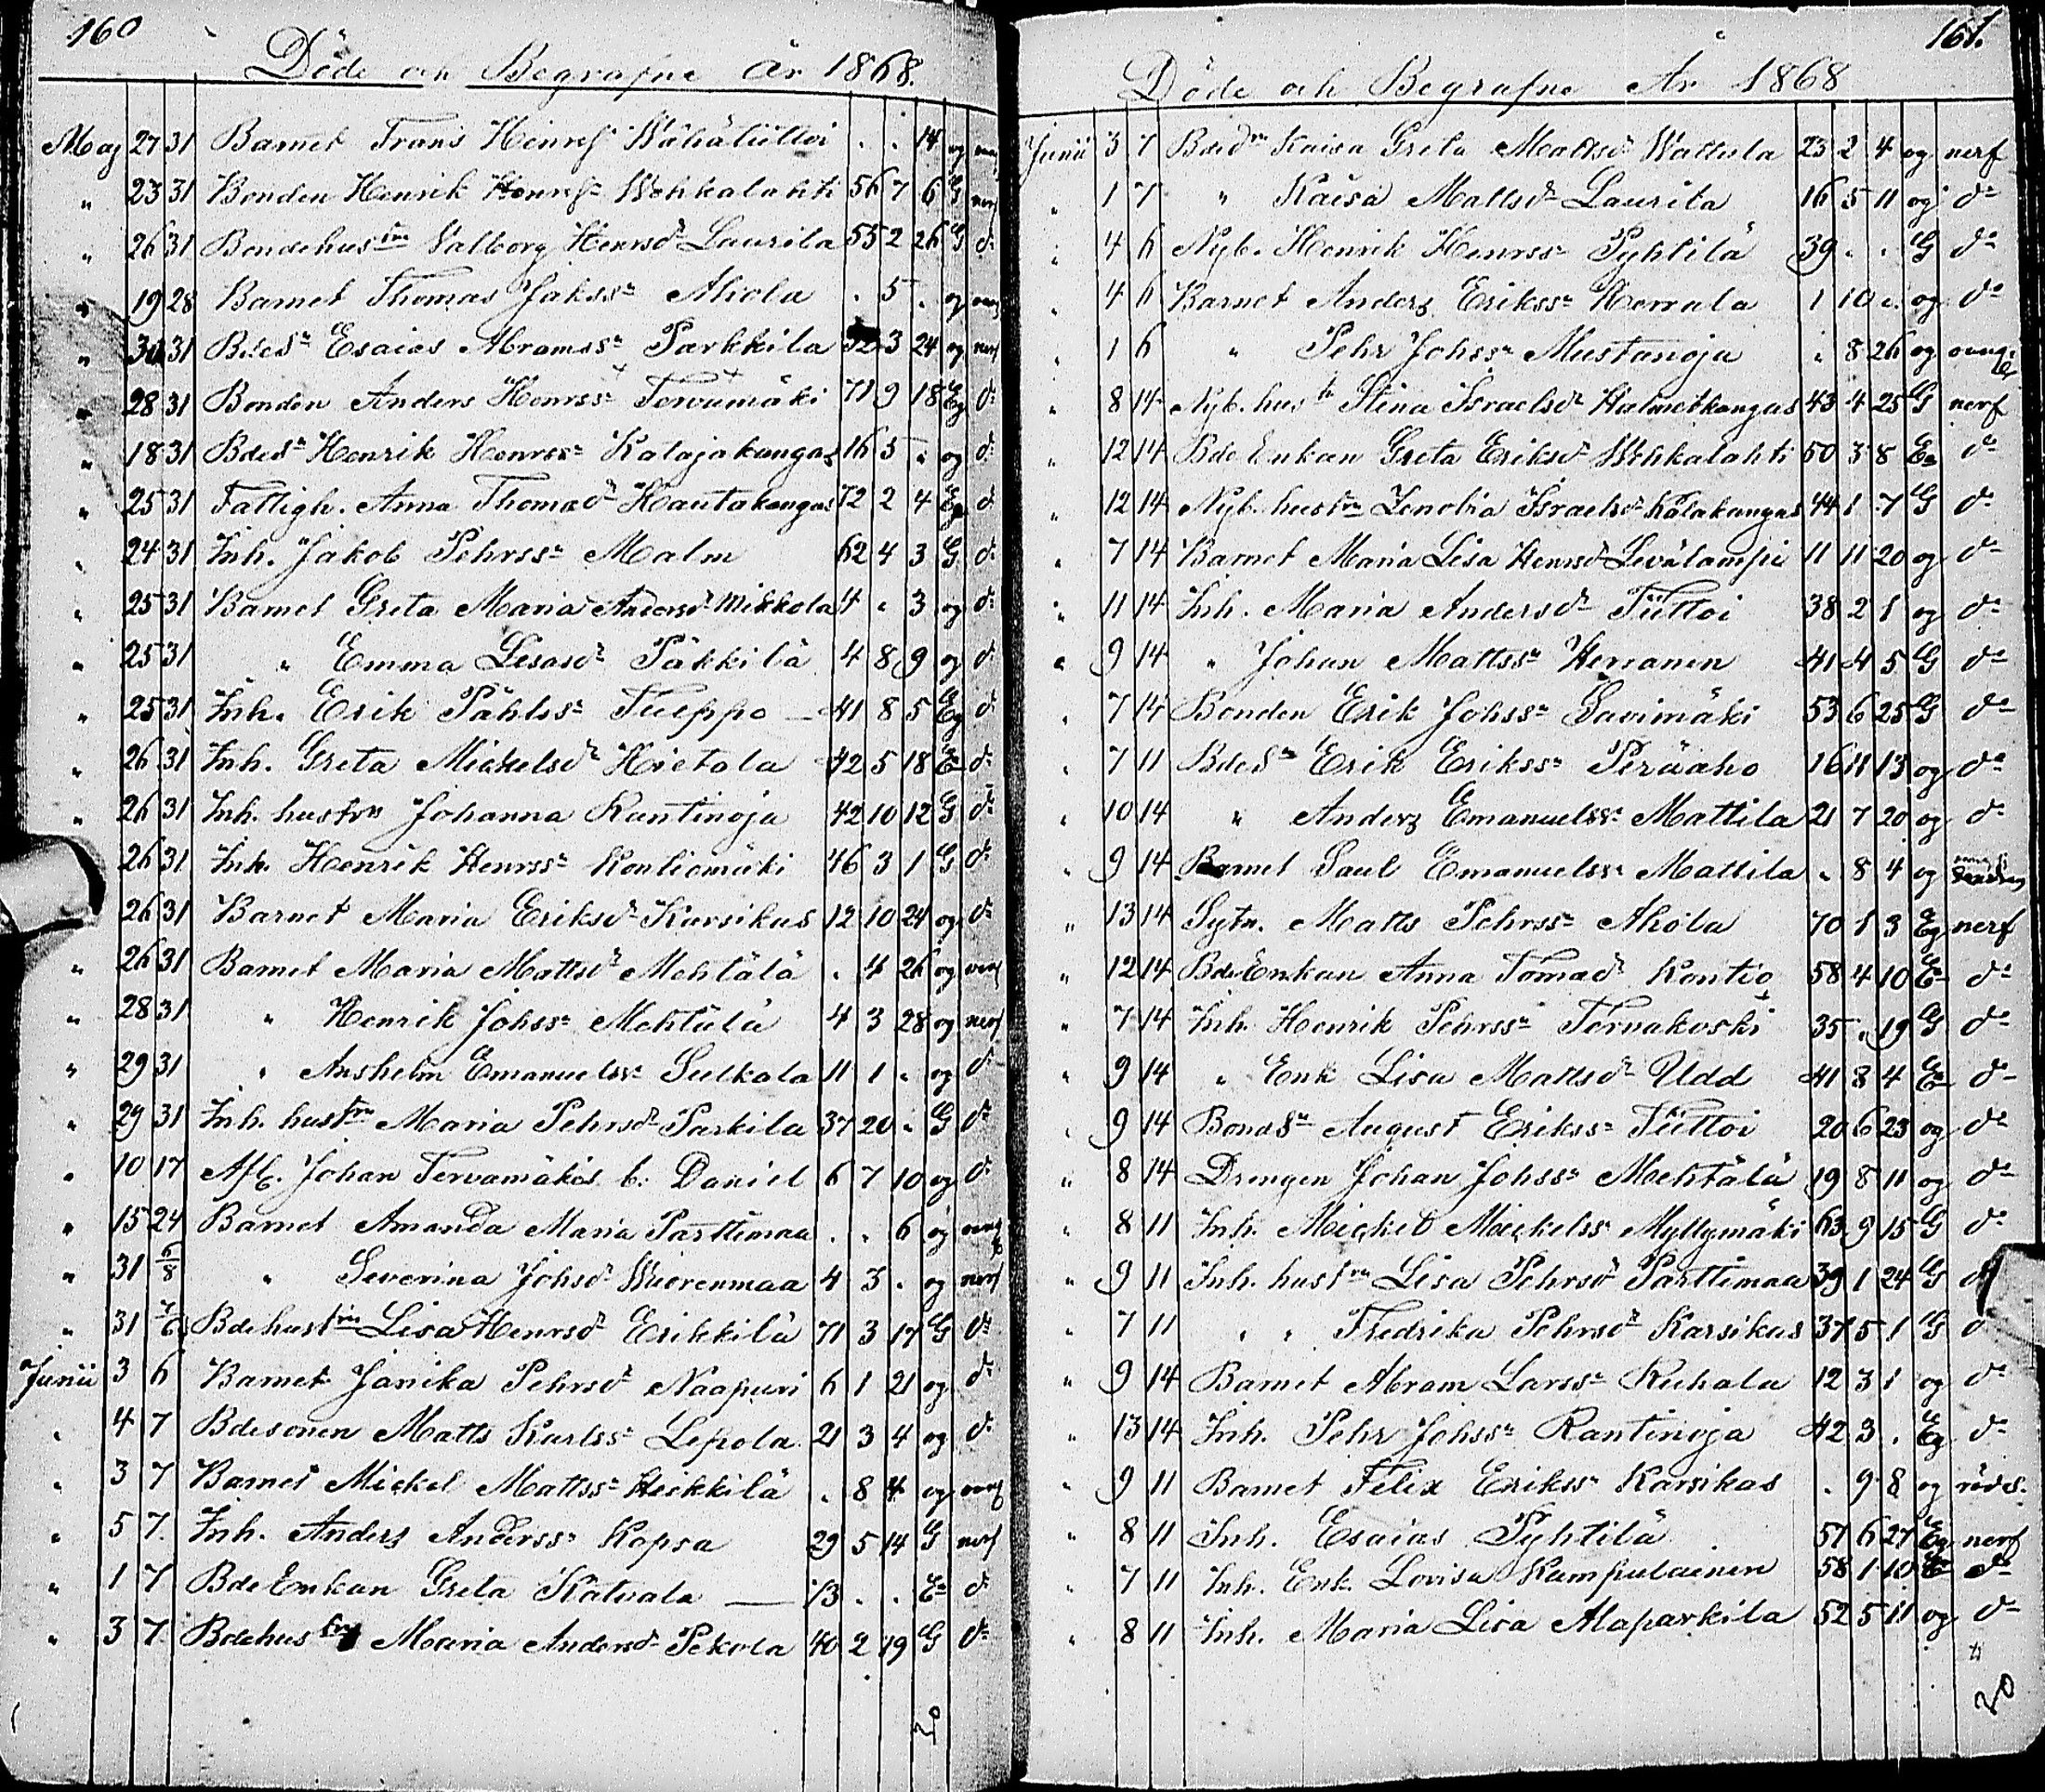 160
Döde och Begrafne År 1868.
Maj 27 31 Barnet Frans Henrss Wähätiittoi . . 14 og
" 23 31 Bonden Henrik Henrss Wehkalahti 56 7 6 G nerf
" 26 31 Bondehustru Valborg Henrsdr Laurila 55 2 26 G do
" 19 28 Barnet Thomas Jakss Ahola . 5 . og
" 30 31 Bdesn Esaias Abramss Parkkila 3 24 og nerf
" 28 31 Bonden Anders Henrss Tervamäki 71 9 18 Eg do
" 18 31 Bdesn Henrik Henrss Katajakangas 16 5 " og do
" 25 31 Fattigh. Anna Thomasdr Hautakangas 72 2 4 do
" 24 31 Inh. Jakob Pehrss Malm 62 4 3 G do
" 25 31 Barnet Greta Maria Andersdr Mikkola 4 " 3 og do
" 25 31 " Emma Lisasdr Päkkilä 4 8 9 og do
" 25 31 Inh. Erik Påhlss Tuppo 41 8 5 Eg do
" 26 31 Inh. Greta Mickelsdr Hietala 42 5 18 E do
" 26 31 Inh. hustru Johanna Rantinoja 42 10 12 G do
" 26 31 Inh. Henrik Henrss Kontiomäki 46 3 1 G do
" 26 31 Barnet Maria Eriksdr Karsikas 12 10 24 og do
" 26 31 Barnet Maria Mattsdr Mehtälä . 4 26 og
" 28 31 " Henrik Johss Mehtälä 4 3 28 og nerf
" 29 31 " Anshelm Emanuelss Sulkala 11 1 " og do
" 29 31 Inh. hustru Maria Pehrsdr Parkila 37 20 " G do
" 10 17 Afl. Johan Tervamäkis b. Daniel 6 7 10 og do
" 15 24 Barnet Amanda Maria Parttimaa . . 6 og
" 31 6/8 " Severina Johsdr Wuorenmaa 4 3 . og nerf
" 31 7/6 Bdehustru Lisa Henrsdr Erikkilä 71 3 17 G do
Junii 3 6 Barnet Janika Pehrsdr Naapuri 6 1 21 og do
" 4 7 Bdesonen Matts Karlss Lepola 21 3 4 og do
" 3 7 Barnet Mickel Mattss Heikkilä . 8 4 og
" 5 7 Inh. Anders Anderss Kopsa 29 5 14 G nerf
" 1 7 Bde Enkan Greta Katvala — 73 . . E do
" 3 7 Bdehustru Maria Andersdr Pekola 40 2 19 G do
20
161.
Döde och Begrafne År 1868
Junii 3 7 Bdedr Kaisa Greta Mattsdr Wattula 23 2 4 og nerf
" 1 7 " Kaisa Mattsdr Laurila 16 5 11 og do
" 4 6 Nyb. Henrik Henrss Pyhtilä 39 . . G do
" 4 6 Barnet Anders Erikss Herrala 1 10 " og do
" 1 6 " Pehr Johss Mustanoja " 8 26 og
" 8 14 Nyb. hustr Stina Israelsdr Halmetkangas 43 4 25 G nerf
" 12 14 Bde Enkan Greta Eriksdr Wehkalahti 50 3 8 E do
" 12 14 Nyb. hustru Zenobia Israelsdr Kalakangas 44 1 7 G do
" 7 14 Barnet Maria Lisa Henrsdr Levälampi 11 11 20 og do
" 11 14 Inh. Maria Andersdr Tiittoi 38 2 1 og do
" 9 14 " Johan Mattss Herranen 41 4 5 G do
" 7 14 Bonden Erik Johss Savimäki 53 6 25 G do
" 7 11 Bdesn Erik Erikss Peräaho 16 11 13 og do
" 10 14 " Anders Emanuelss Mattila 21 7 20 og do
" 9 14 Barnet Saul Emanuelss Mattila " 8 4 og
" 13 14 Sytn. Matts Pehrss Ahola 70 1 3 Eg nerf
" 12 14 Bde Enkan Anna Tomasdr Kontio 58 4 10 E do
" 7 14 Inh. Henrik Pehrss Tornakoski 35 " 19 G do
" 9 14 " Enk Lisa Mattsdr Udd 41 8 4 E do
" 9 14 Bondsn August Erikss Tiittoi 20 6 23 og do
" 8 14 Drengen Johan Johss Mehtälä 19 8 11 og do
" 8 11 Inh. Mickel Mickelss Myllymäki 63 9 15 G do
" 9 11 Inh. hustru Lisa Pehrsdr Parttimaa 39 1 24 G d
" 7 11 " " Fredrika Pehrsdr Karsikas 37 5 1 G d
" 9 14 Barnet Abram Larss Kuhala 12 3 1 og do
" 13 14 Inh. Pehr Johss Rantinoja 42 3 . Eg do
" 9 11 Barnet Felix Erikss Karsikas . 9 8 og röds.
" 8 11 Inh. Esaias Pyhtilä 51 6 27 Eg nerf
" 7 11 Inh. Enk. Lovisa Kumpulainen 58 1 10 E do
" 8 11 Inh. Maria Lisa Alaparkila 52 5 11 og do
20